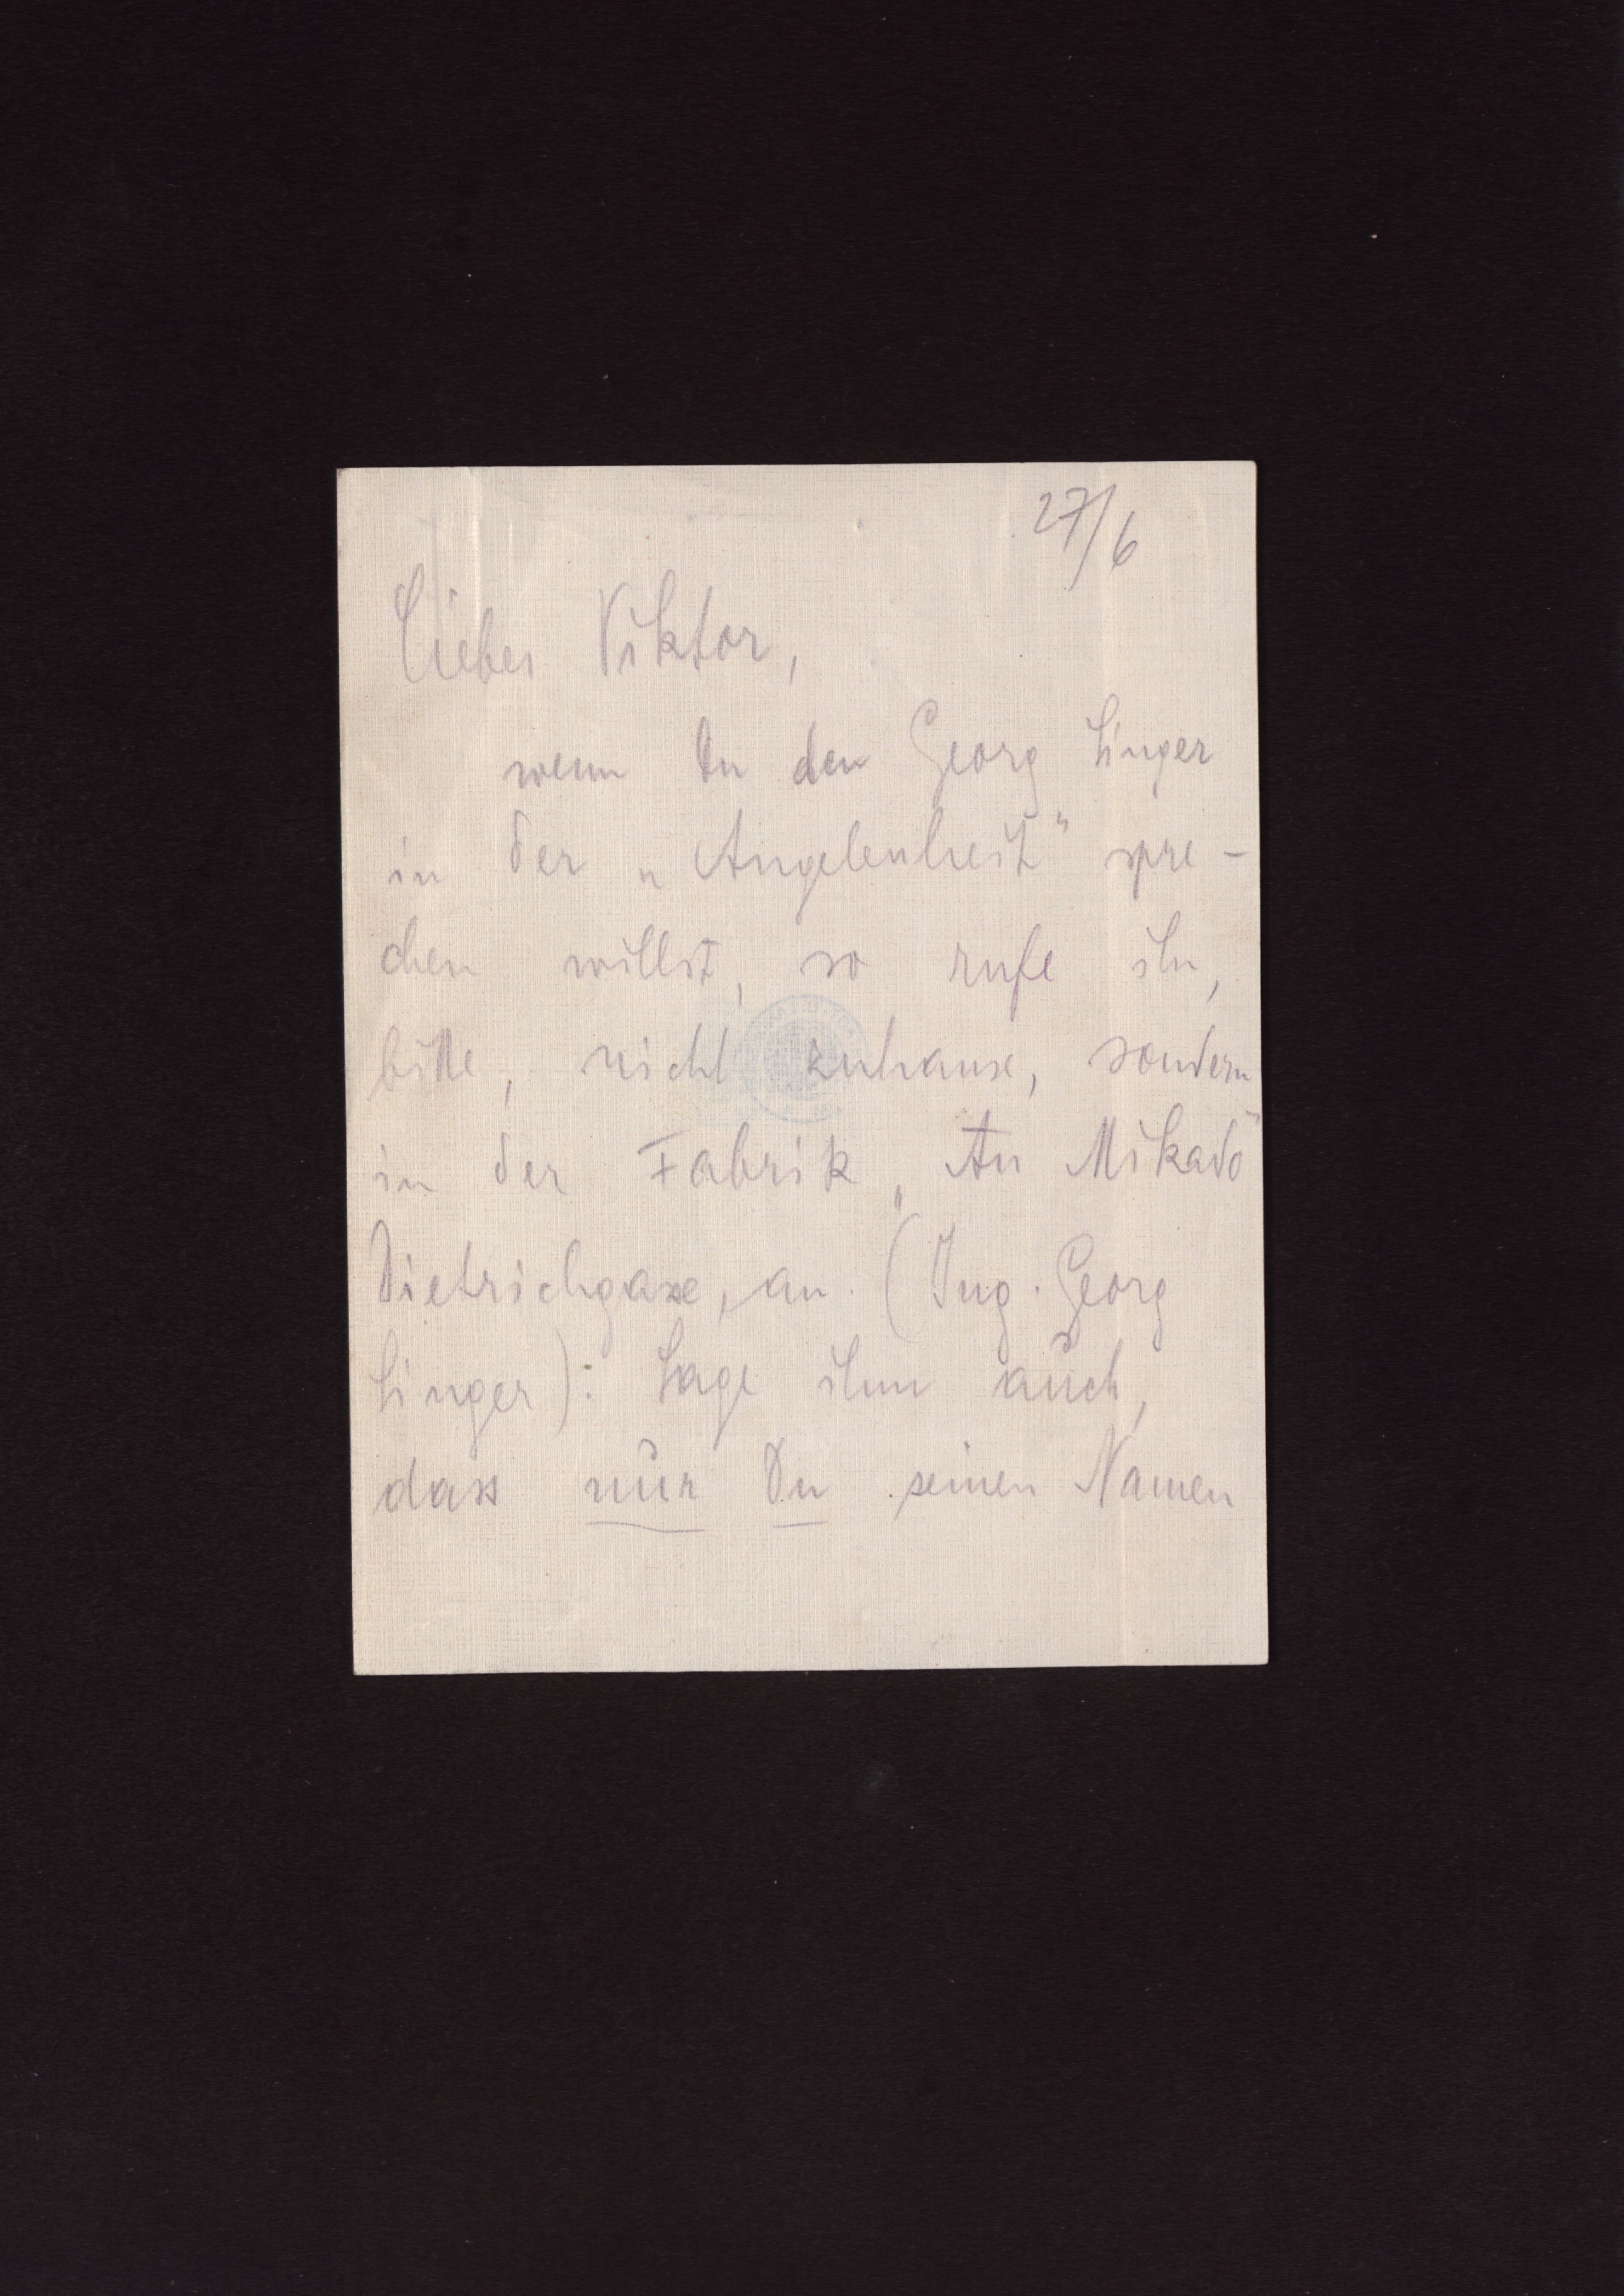 27/6
Lieber Viktor,
wenn Du den Georg Singer
in der „Angelenheit" spre-
chen willst, so rufe ihn,
bitte, nicht zuhause, sondern
in der Fabrik „Au Mikado"
Dietrichgasse, an. (Ing. Georg
Singer). Sage ihm auch,
dass nur Du seinen Namen